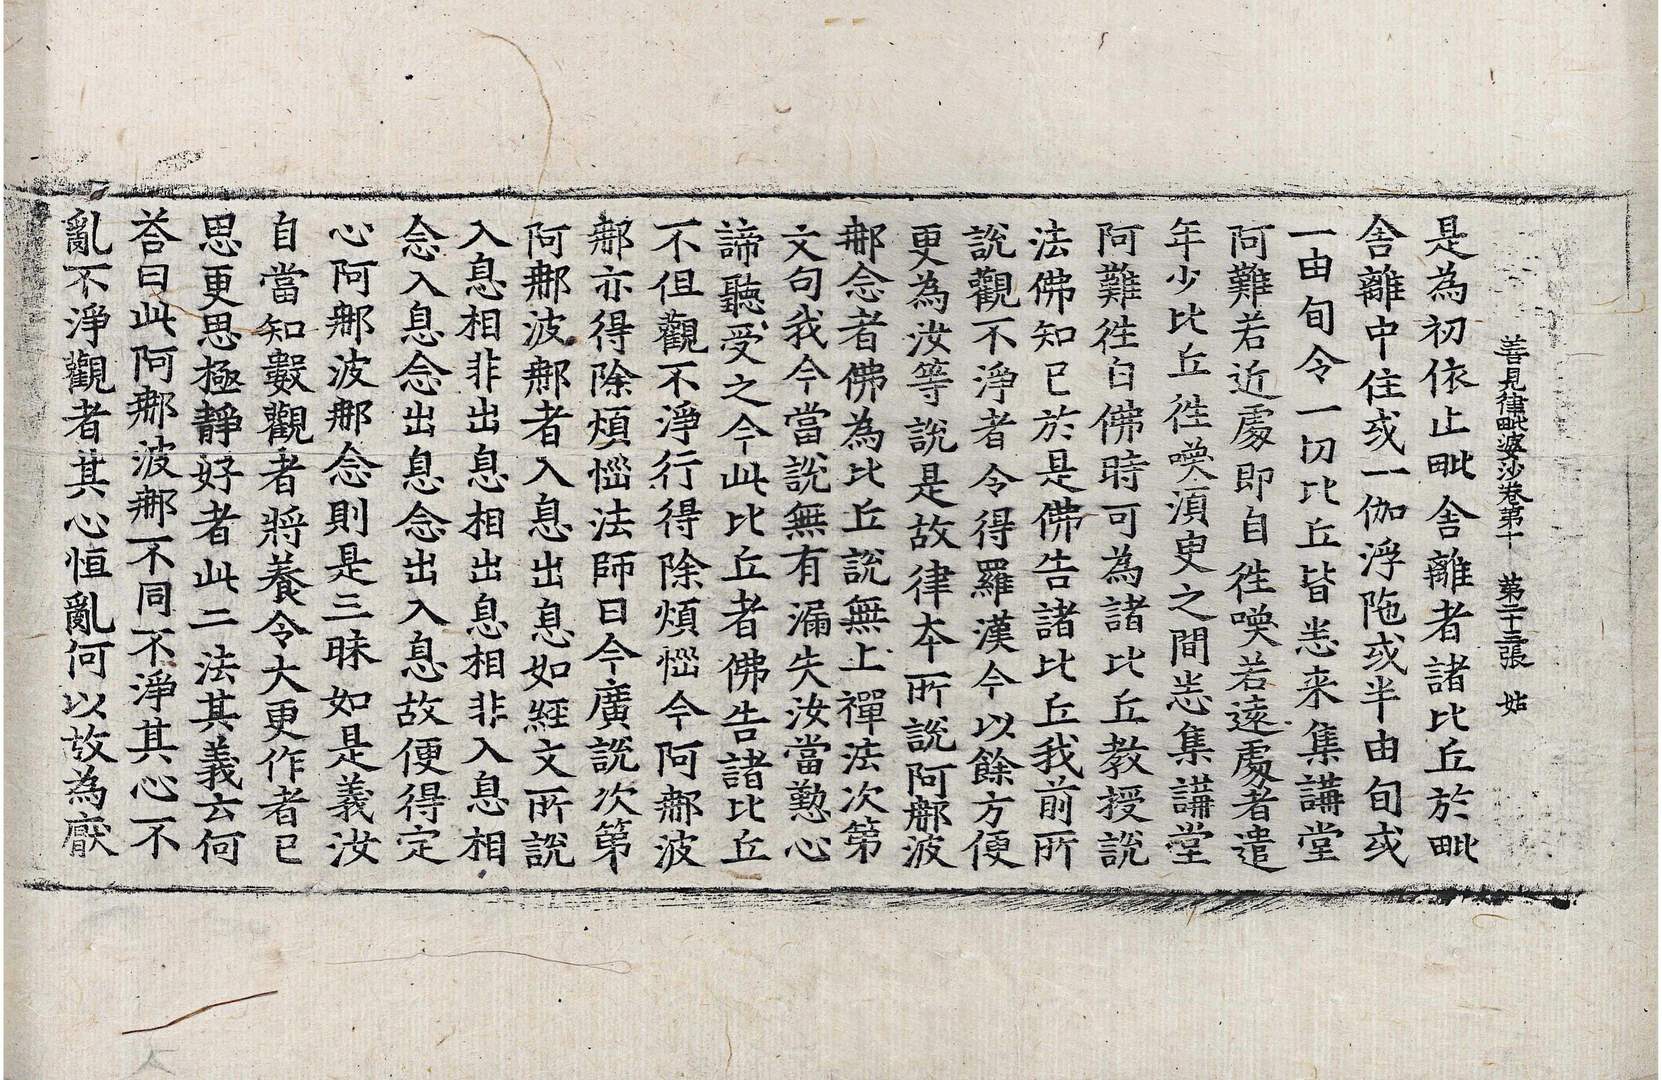 善見律毗婆沙卷第十 第二十三張 姑
是為初依止毗舍離者諸比丘於毗
舍離中住或一伽浮陁或半由旬或
一由旬令一切比丘皆悉来集講堂
阿難若近處即自徃喚若遠處者遣
年少比丘徃喚湏臾之間悉集講堂
阿難徃白佛時可為諸比丘教授說
法佛知已於是佛告諸比丘我前所
說觀不淨者令得羅漢今以餘方便
更為汝等說是故律本所說阿𨚗波
𨚗念者佛為比丘說無上禪法次第
文句我今當說無有漏失汝當懃心
諦聽受之今此比丘者佛告諸比丘
不但觀不淨行得除煩惱今阿𨚗波
𨚗亦得除煩惱法師曰今廣說次第
阿𨚗波𨚗者入息出息如經文所說
入息相非出息相出息相非入息相
念入息念出息念出入息故便得定
心阿𨚗波𨚗念則是三昧如是義汝
自當知數觀者將養令大更作者已
思更思極靜好者此二法其義云何
荅曰此阿𨚗波𨚗不同不淨其心不
亂不淨觀者其心恒亂何以故為厭